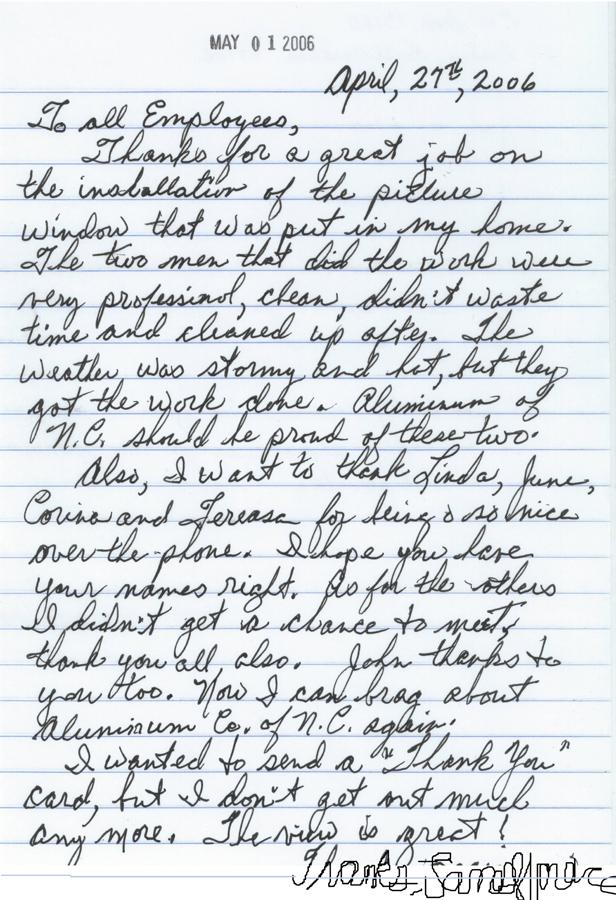 MAY 01 2006
April, 27th, 2006
To all Employees,
Thanks for a great job on
the installation of the picture
window that was put in my home.
The two men that did the work were
very professinol, clean, didn't waste
time and cleaned up after. The
weather was stormy and hot, but they
got the work done. Aluminum of
N.C. should be proud of these two.
Also, I want to thank Linda, June,
Corina and Tereasa for being so nice
over the phone. I hope you have
your names right. As for the others
I didn't get a chance to meet,
thank you all also. John thanks to
you too. Now I can brag about
Aluminum Co. of N.C. again.
I wanted to send a "Thank You"
card, but I don't get out much
any more. The view is great!
Thanks,